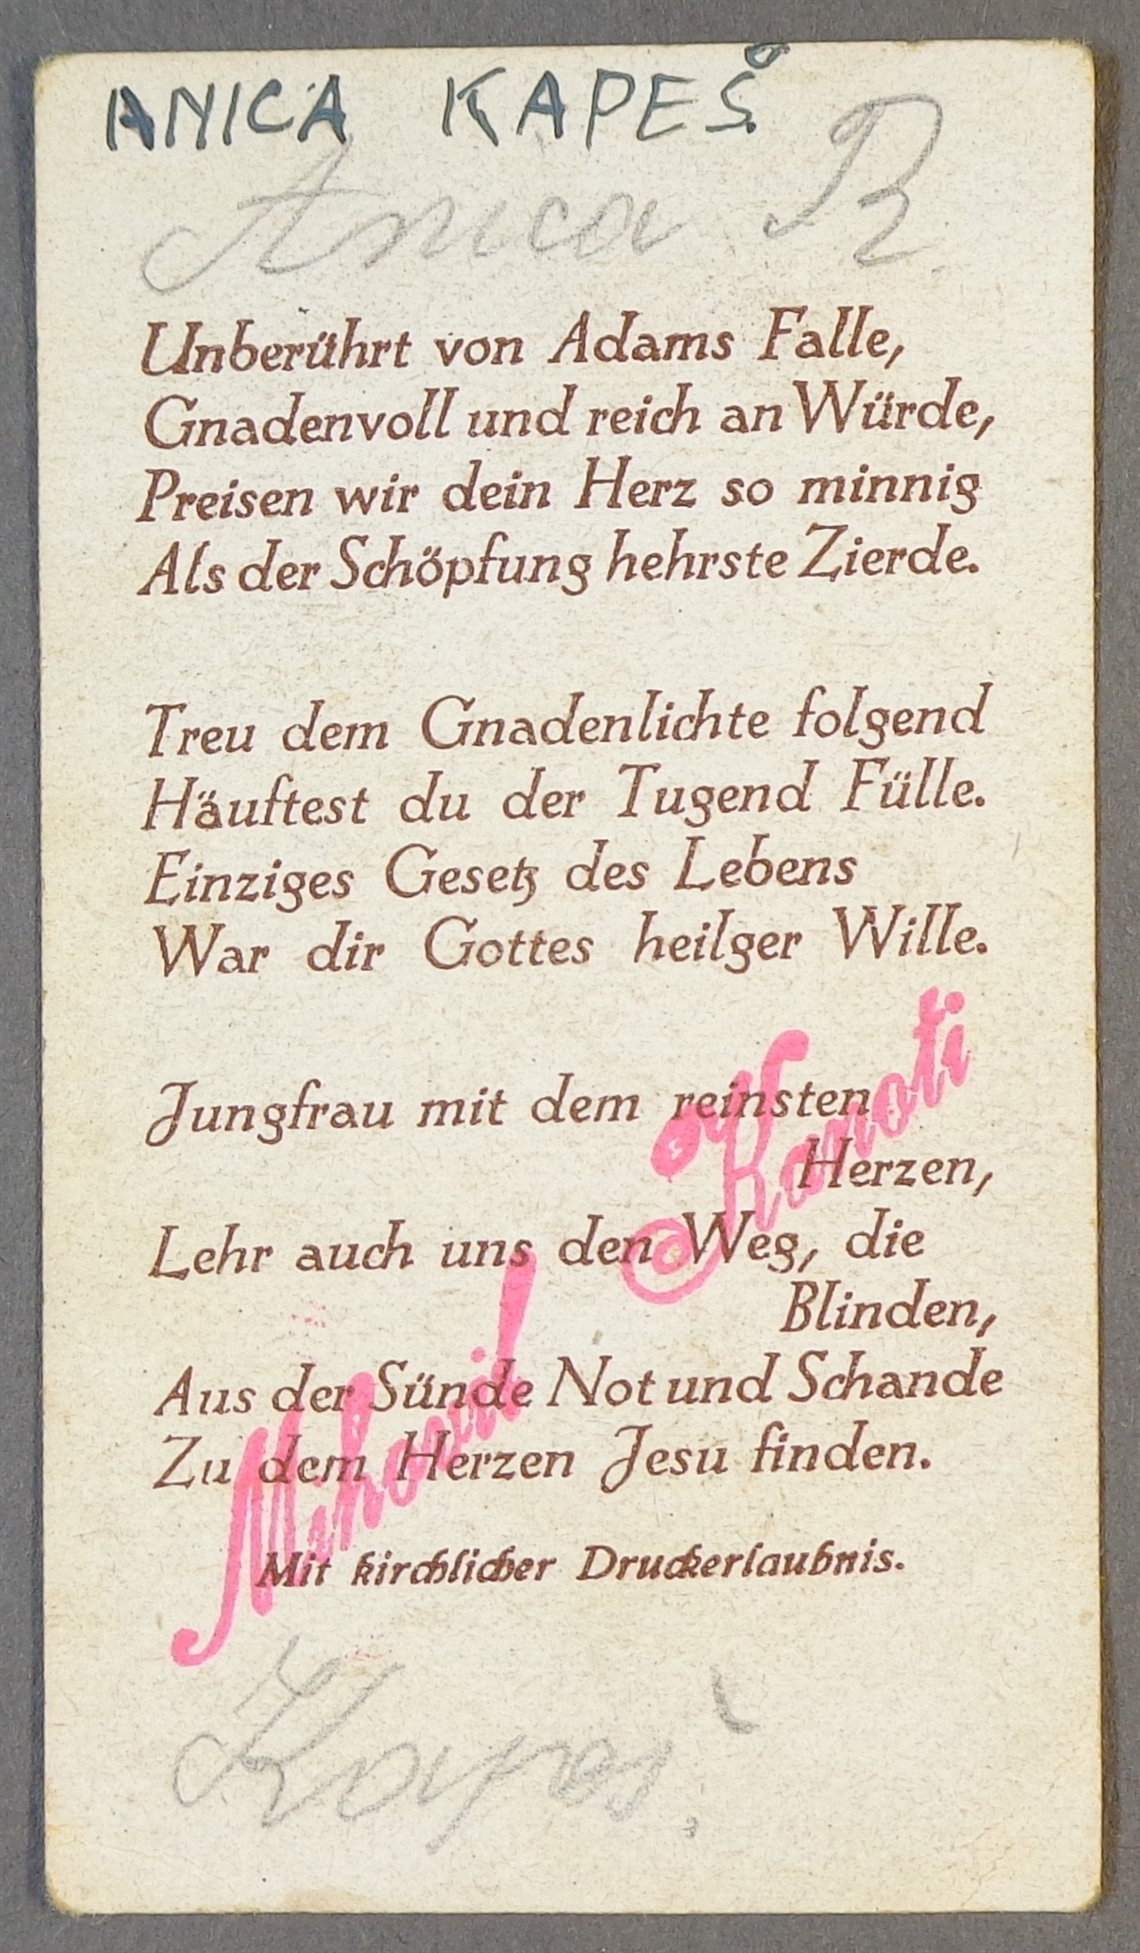 ANICA KAPEŠ
Anica
Unberührt von Adams Falle,
Gnadenvoll und reich an Würde,
Preisen wir dein Herz so minnig
Als der Schöpfung hehrste Zierde.
Treu dem Gnadenlichte folgend
Häuftest du der Tugend Fülle.
Einziges Gesetz des Lebens
War dir Gottes heilger Wille.
Jungfrau mit dem reinsten
Herzen,
Lehr auch uns den Weg, die
Blinden,
Aus der Sünde Not und Schande
Zu dem Herzen Jesu finden.
Mihovil Kanoti
Mit kirchlicher Druckerlaubnis.
Kapeš.